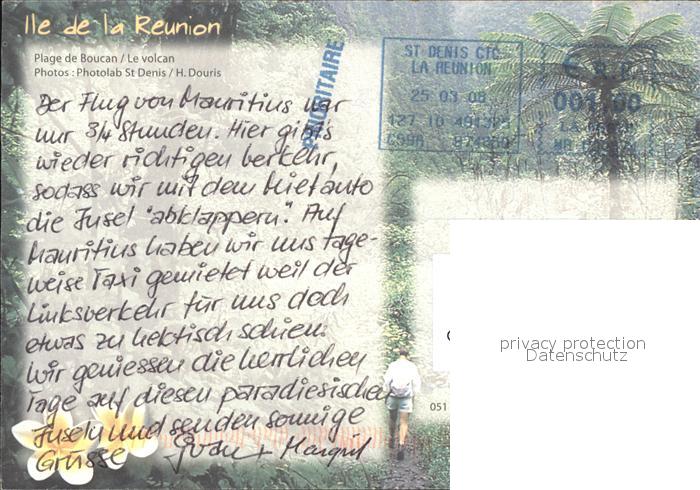 Ile de la Reunion
Plage de Boucan / Le volcan
Photos : Photolab St Denis / H. Douris
PRIORITAIRE
ST DENIS CTC
LA REUNION
25 03 08
001,00
Der Flug von Mauritius war
nur 3/4 Stunden. Hier gibt's
wieder richtigen Verkehr,
sodass wir mit dem Mietauto
die Insel "abklappern". Auf
Mauritius haben wir uns tage-
weise Taxi gemietet weil der
Linksverkehr für uns doch
etwas zu hektisch schien.
Wir geniessen die herrlichen
Tage auf diesen paradiesischen
Inseln und senden sonnige
Grüsse
051
privacy protection
Datenschutz